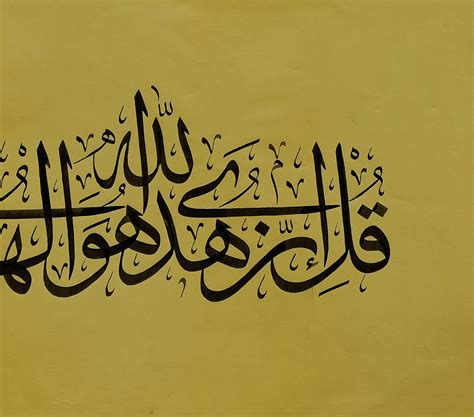 قُلْ إِنَّ هُدَى اللّٰهِ هُوَ الْهُ